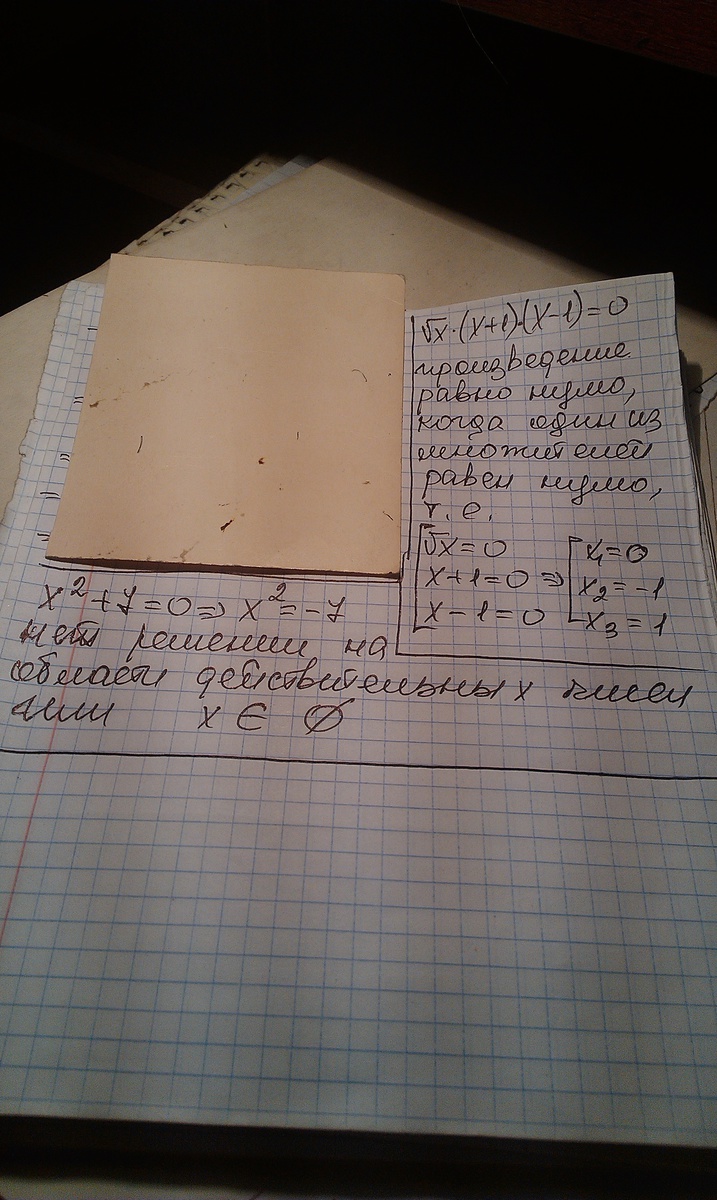 √x·(x+1)·(x-1)=0
произведение
равно нулю,
когда один из
множителей
равен нулю,
т. е.
√x=0
x+1=0 ⇒
x-1=0
x₁=0
x₂=-1
x₃=1
x²+7=0⇒ x²=-7
нет решений на
области действительных чисел
или x ∈ ∅